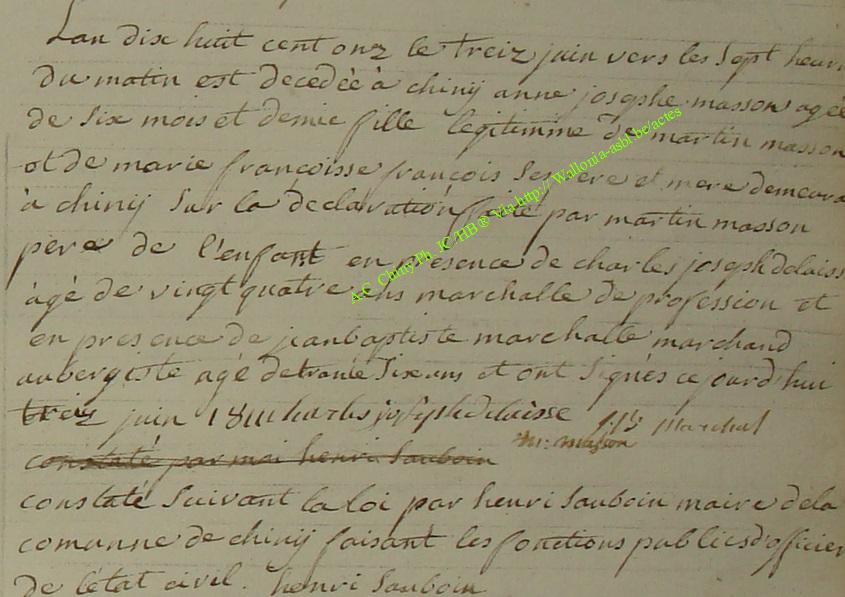 Lan dix huit cent onz le treiz juin vers les sept heur
du matin est decedée à chinij anne josephe masson agée
de six mois et demie fille legitimme de martin masson
et de marie francoisse francois ses pere et mere demeura
à chinij sur la declaration faite par martin masson
père de l'enfant en présence de charles joseph delaiss
âgé de vingt quatre ans marchalle de profession et
en presence de jean baptiste marchalle marchand
aubergiste agé de trante six ans et ont signés ce jourd'hui
treiz juin 1811 charles joseph delaisse J: B: marchal
m: masson
constaté par moi henri sauboin
constaté suivant la loi par henri sauboin maire dela
comunne de chinij faisant les fonctions publics d'officier
de l'état civil. henri sauboin
A.C. Chiny Ph. JC/HB ® via http://Wallonia-asbl.be/actes